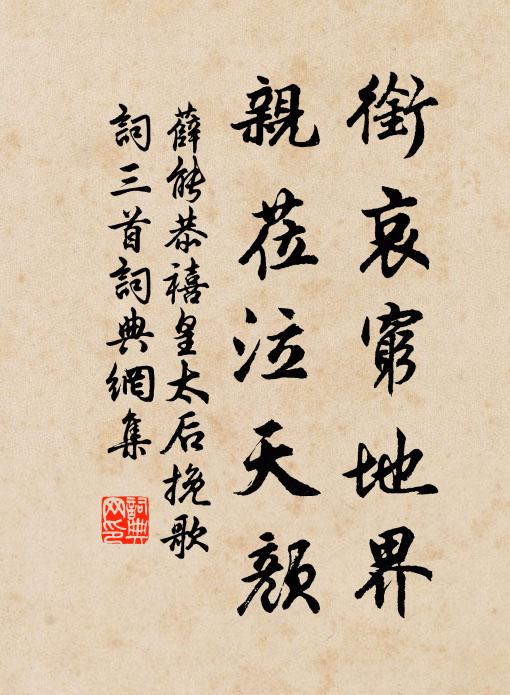 銜哀窮地界
親蒞泣天顏
薛能恭禧皇太后挽歌
詞三首詞典網集
詞典
網印